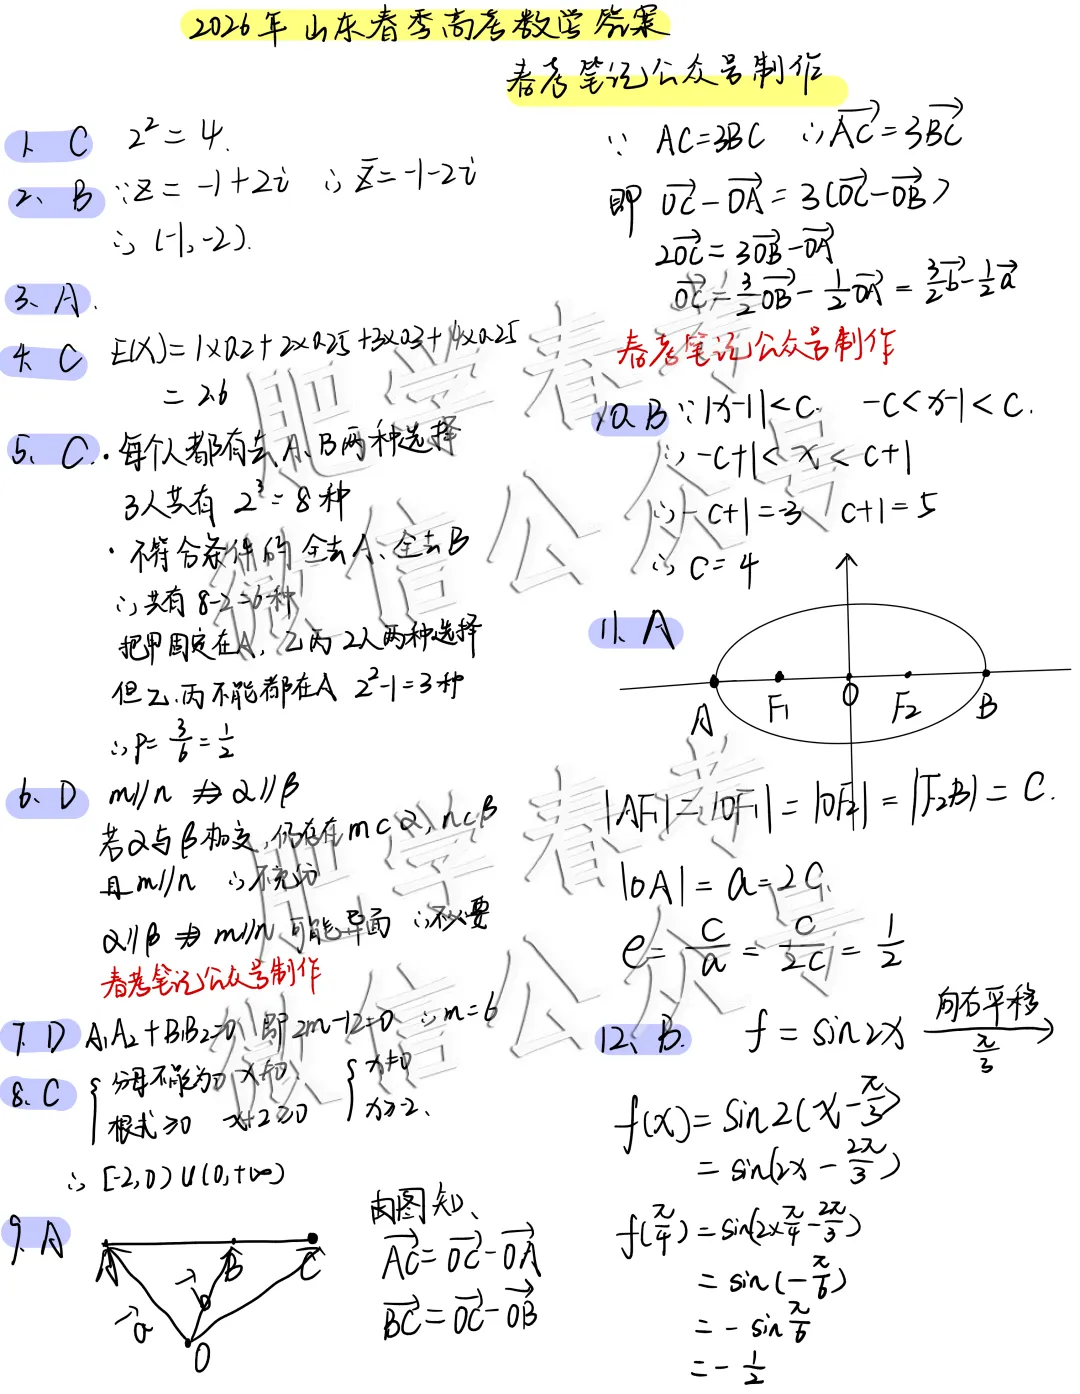 2026年山东春季高考数学答案
春考笔记公众号制作
1、C 2²=4.
2、B ∵z=-1+2i ∴z̄=-1-2i
∴(-1,-2).
3、A.
4、C E(X)=1×0.2+2×0.25+3×0.3+4×0.25
=2.6
5、C.·每个人都有去A、B两种选择
3人共有 2³=8种
·不符合条件的 全去A、全去B
∴共有 8-2=6种
把甲固定在A, 乙丙2人两种选择
但乙、丙不能都在A 2²-1=3种
∴P=3/6=1/2
6、D m//n ⇏ α//β
若α与β相交,仍存在m⊂α,n⊂β
且m//n ∴不充分
α//β ⇏ m//n 可能异面 ∴不必要
春考笔记公众号制作
7、D A₁A₂+B₁B₂=0 即2m-12=0 ∴m=6
8、C { 分母不能为0 x≠0. { x≠0
根式≥0 x+2≥0 x≥-2.
∴[-2,0)∪(0,+∞)
9、A 由图知、
A B C
a b O
AC→=OC→-OA→
BC→=OC→-OB→
∵ AC=3BC ∴AC→=3BC→
即 OC→-OA→=3(OC→-OB→)
2OC→=3OB→-OA→
OC→=3/2OB→-1/2OA→=3/2b→-1/2a→
春考笔记公众号制作
10、B ∵|x-1|<c. -c<x-1<c.
∴-c+1<x<c+1
∴-c+1=-3 c+1=5
∴c=4
11、A
A F₁ O F₂ B
|AF₁|=|OF₁|=|OF₂|=|F₂B|=c.
|OA|=a=2c.
e=c/a=c/2c=1/2
12、B. f=sin2x 向右平移 π/3
f(x)=sin2(x-π/3)
=sin(2x-2π/3)
f(π/4)=sin(2×π/4-2π/3)
=sin(-π/6)
=-sinπ/6
=-1/2
肥学春考
微信公众号
肥学春考
微信公众号